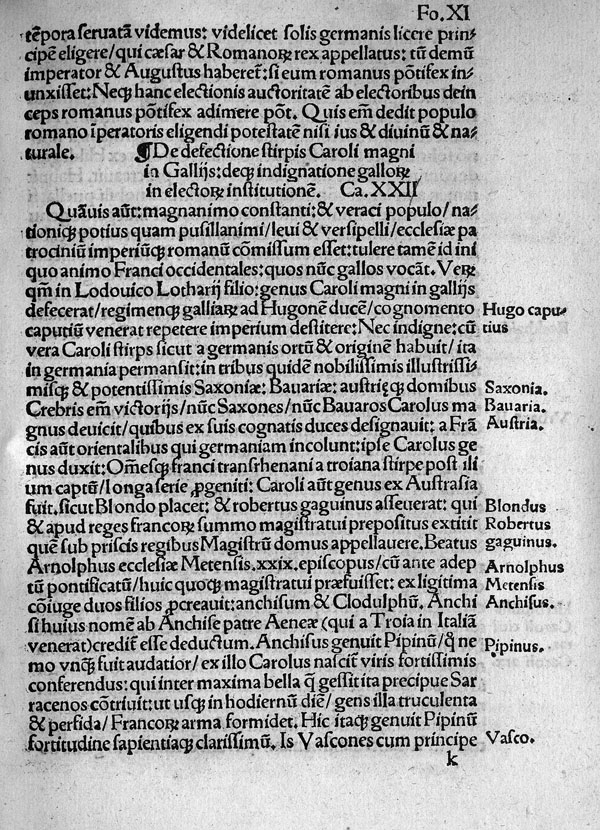 Fo.XI
tēpora seruatā videmus: videlicet solis germanis licere prin⸗
cipē eligere/qui cæsar & Romanoꝝ rex appellatus: tū demū
imperator & Augustus haberet: si eum romanus pōtifex in⸗
unxisset: Neqꝫ hanc electionis auctoritatē ab electoribus dein
ceps romanus pōtifex adimere pōt. Quis em̄ dedit populo
romano īperatoris eligendi potestatē nisi ius & diuinū & na⸗
turale. ¶De defectione stirpis Caroli magni
in Gallijs: deqꝫ indignatione galloꝝ
in electoꝝ institutionē. Ca.XXII
Quāuis aūt: magnanimo constanti: & veraci populo/na⸗
tioniqꝫ potius quam pusillanimi/leui & versipelli/ecclesiæ pa
trociniū imperiūqꝫ romanū cōmissum esset: tulere tamē id ini
quo animo Franci occidentales: quos nūc gallos vocāt. Veꝝ
qm̄ in Lodouico Lotharij filio: genus Caroli magni in gallijs
defecerat/regimenqꝫ galliaꝝ ad Hugonē ducē/cognomento
Hugo capu⸗
caputiū venerat repetere imperium destitere: Nec indigne: cū
tius
vera Caroli stirps sicut a germanis ortū & originē habuit/ita
in germania permansit: in tribus quidē nobilissimis illustrissi⸗
misqꝫ & potentissimis Saxoniæ: Bauariæ: austrięqꝫ domibus
Saxonia.
Crebris em̄ victorijs/nūc Saxones/nūc Bauaros Carolus ma
Bauaria.
gnus deuicit/quibus ex suis cognatis duces designauit: a Frā
Austria.
cis aūt orientalibus qui germaniam incolunt: ipse Carolus ge
nus duxit: Om̄esqꝫ franci transrhenani a troiana stirpe post ili
um captū/longa serie ꝓgeniti: Caroli aūt genus ex Austrasia
fuit. sicut Blondo placet: & robertus gaguinus asseuerat: qui
Blondus
& apud reges francoꝝ summo magistratui prepositus extitit
Robertus
quē sub priscis regibus Magistrū domus appellauere. Beatus
gaguinus.
Arnolphus ecclesiæ Metensis.xxix.episcopus/cū ante adep
Arnolphus
tū pontificatū/huic quoqꝫ magistratui præfuisset: ex ligitima
Metensis
cōiuge duos filios ꝓcreauit: anchisum & Clodulphū. Anchi
Anchisus.
si huius nomē ab Anchise patre Aeneæ (qui a Troia in Italiā
venerat) credit̄ esse deductum. Anchisus genuit Pipinū/q̄ ne
Pipinus.
mo vnqꝫ fuit audatior/ex illo Carolus nascit̄ viris fortissimis
conferendus: qui inter maxima bella q̄ gessit ita precipue Sar
racenos cōtriuit: ut usqꝫ in hodiernū diē/gens illa truculenta
& perfida/Francoꝝ arma formidet. Hic itaqꝫ genuit Pipinū
fortitudine sapientiaqꝫ clarissimū. Is Vascones cum principe
Vasco.
k